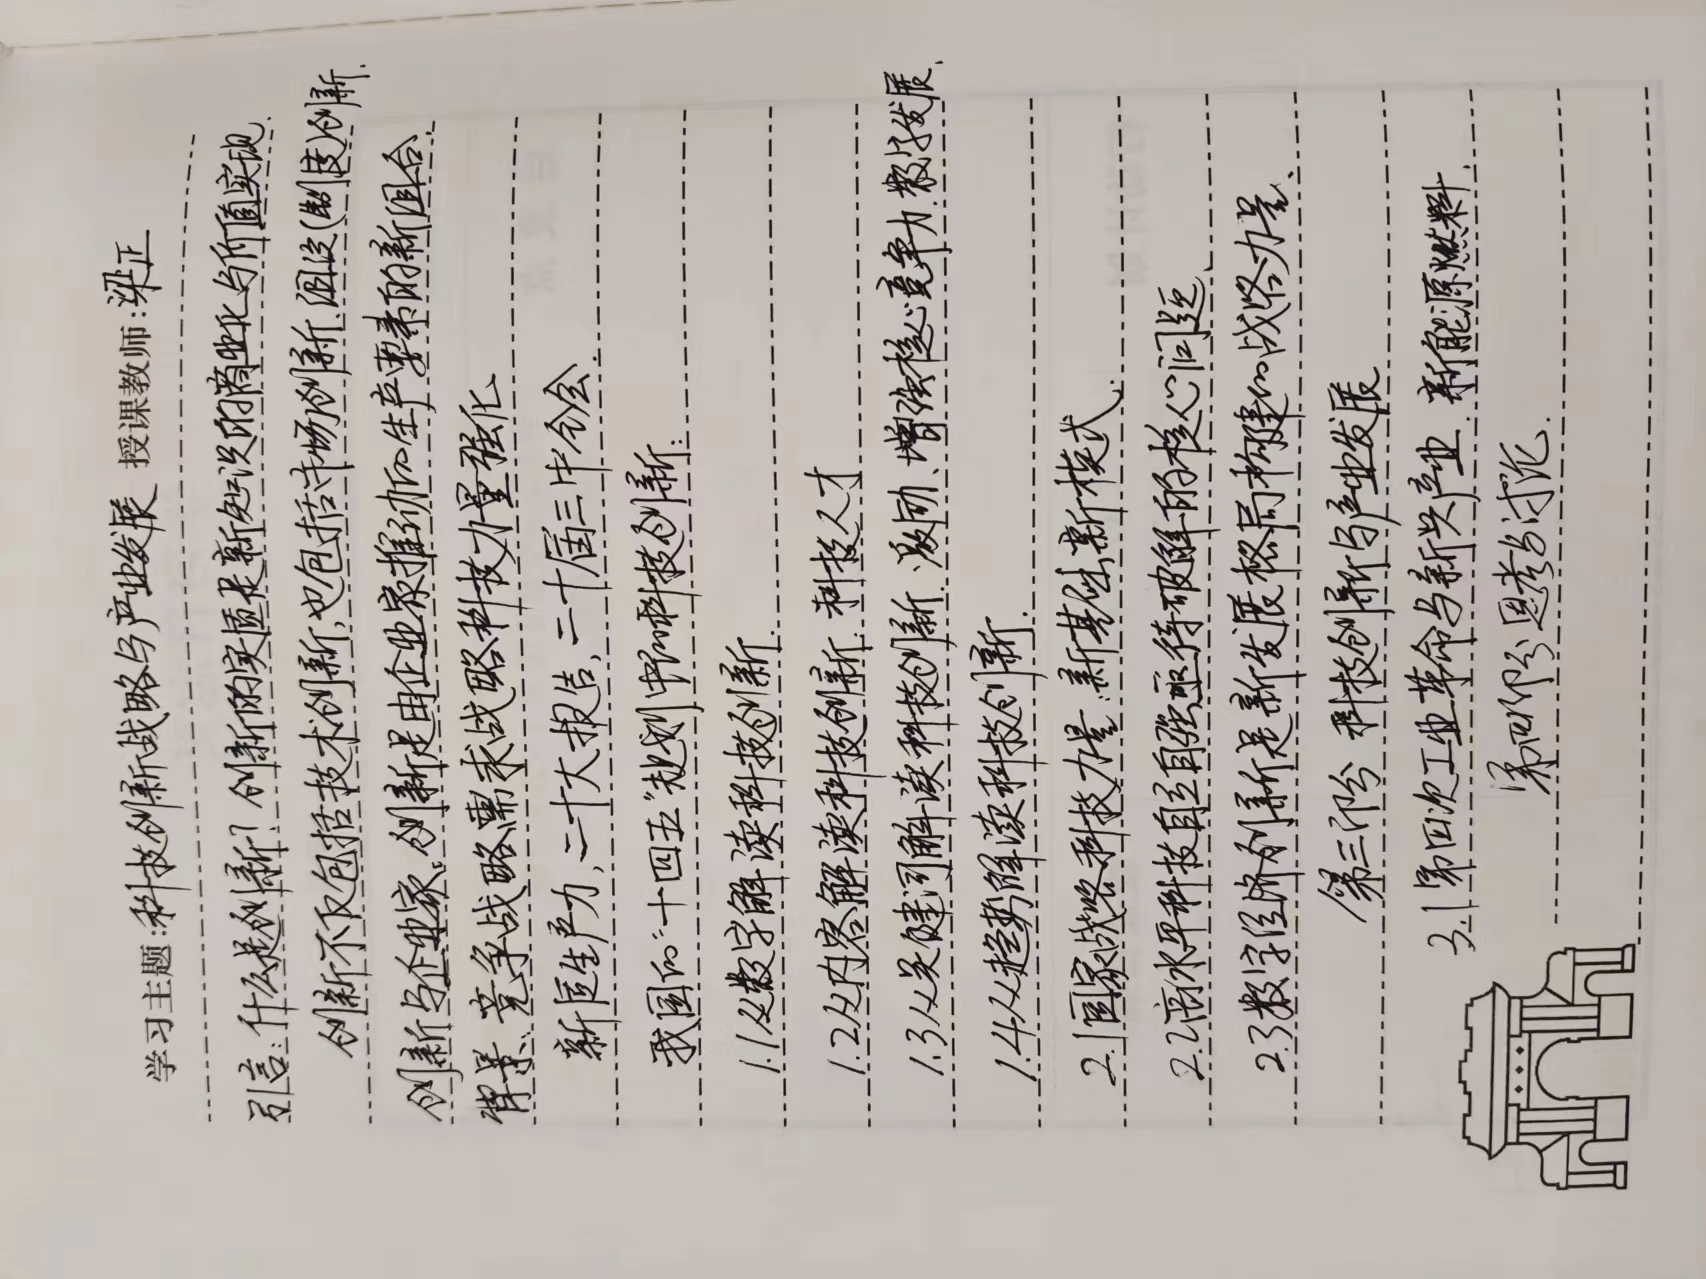 学习主题:科技创新战略与产业发展 授课教师:梁正
引言:什么是创新?创新的实质是新知识的商业化与价值实现.
创新不仅包括技术创新,也包括市场创新.组织(制度)创新.
创新与企业家.创新是由企业家推动的生产要素的新组合.
背景:竞争战略需求战略科技力量强化
新质生产力,二十大报告,二十届三中全会.
我国的"十四五"规划中的科技创新:
1.1从数字解读科技创新.
1.2从内容解读科技创新.科技人才
1.3从关键词解读科技创新.激励、增强核心竞争力.数字发展.
1.4从趋势解读科技创新.
2.1国家战略科技力量:新基础新模式.
2.2高水平科技自立自强亟待破解的核心问题、
2.3数字经济创新是新发展格局构建的战略力量、
第三部分 科技创新与产业发展
3.1第四次工业革命与新兴产业.新能源燃料.
第四部分 思考与讨论.